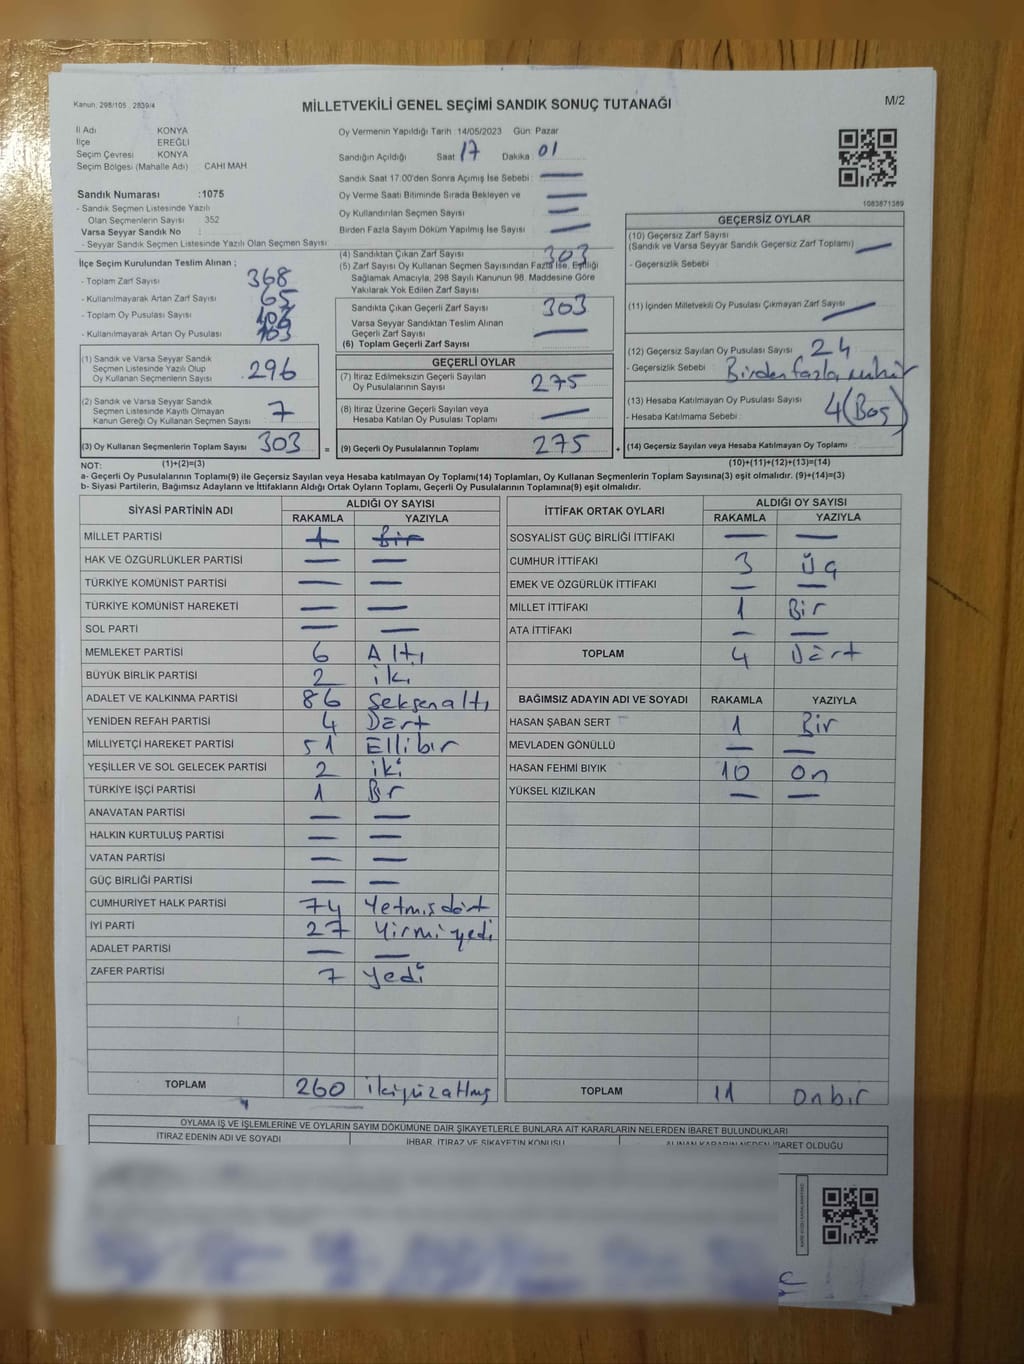 Kanun, 298/105 , 2839/4
MİLLETVEKİLİ GENEL SEÇİMİ SANDIK SONUÇ TUTANAĞI
M/2
İl Adı KONYA
İlçe EREĞLİ
Seçim Çevresi KONYA
Seçim Bölgesi (Mahalle Adı) CAHI MAH
Sandık Numarası :1075
- Sandık Seçmen Listesinde Yazılı
Olan Seçmenlerin Sayısı 352
Varsa Seyyar Sandık No :
- Seyyar Sandık Seçmen Listesinde Yazılı Olan Seçmen Sayısı
Oy Vermenin Yapıldığı Tarih :14/05/2023 Gün: Pazar
Sandığın Açıldığı Saat 17 Dakika 01
Sandık Saat 17.00'den Sonra Açımış İse Sebebi : —
Oy Verme Saati Bitiminde Sırada Bekleyen ve —
Oy Kullandırılan Seçmen Sayısı —
Birden Fazla Sayım Döküm Yapılmış İse Sayısı —
1083871389
İlçe Seçim Kurulundan Teslim Alınan ;
- Toplam Zarf Sayısı 368
- Kullanılmayarak Artan Zarf Sayısı 65
- Toplam Oy Pusulası Sayısı
- Kullanılmayarak Artan Oy Pusulası
(1) Sandık ve Varsa Seyyar Sandık
Seçmen Listesinde Yazılı Olup
Oy Kullanan Seçmenlerin Sayısı 296
(2) Sandık ve Varsa Seyyar Sandık
Seçmen Listesinde Kayıtlı Olmayan
Kanun Gereği Oy Kullanan Seçmen Sayısı 7
(3) Oy Kullanan Seçmenlerin Toplam Sayısı 303 =
(4) Sandıktan Çıkan Zarf Sayısı 303
(5) Zarf Sayısı Oy Kullanan Seçmen Sayısından Fazla İse, Eşitliği
Sağlamak Amacıyla, 298 Sayılı Kanunun 98. Maddesine Göre
Yakılarak Yok Edilen Zarf Sayısı
Sandıkta Çıkan Geçerli Zarf Sayısı 303
Varsa Seyyar Sandıktan Teslim Alınan
Geçerli Zarf Sayısı —
(6) Toplam Geçerli Zarf Sayısı
GEÇERLİ OYLAR
(7) İtiraz Edilmeksizin Geçerli Sayılan
Oy Pusulalarının Sayısı 275
(8) İtiraz Üzerine Geçerli Sayılan veya
Hesaba Katılan Oy Pusulası Toplamı —
(9) Geçerli Oy Pusulalarının Toplamı 275 +
GEÇERSİZ OYLAR
(10) Geçersiz Zarf Sayısı
(Sandık ve Varsa Seyyar Sandık Geçersiz Zarf Toplamı) —
- Geçersizlik Sebebi
(11) İçinden Milletvekili Oy Pusulası Çıkmayan Zarf Sayısı —
(12) Geçersiz Sayılan Oy Pusulası Sayısı 24
- Geçersizlik Sebebi : Birden fazla mühür
(13) Hesaba Katılmayan Oy Pusulası Sayısı
- Hesaba Katılmama Sebebi : 4 (Boş)
(14) Geçersiz Sayılan veya Hesaba Katılmayan Oy Toplamı
NOT: (1)+(2)=(3) (10)+(11)+(12)+(13)=(14)
a- Geçerli Oy Pusulalarının Toplamı(9) ile Geçersiz Sayılan veya Hesaba katılmayan Oy Toplamı(14) Toplamları, Oy Kullanan Seçmenlerin Toplam Sayısına(3) eşit olmalıdır. (9)+(14)=(3)
b- Siyasi Partilerin, Bağımsız Adayların ve İttifakların Aldığı Ortak Oyların Toplamı, Geçerli Oy Pusulalarının Toplamına(9) eşit olmalıdır.
SİYASİ PARTİNİN ADI ALDIĞI OY SAYISI
RAKAMLA YAZIYLA
MİLLET PARTİSİ 1 Bir
HAK VE ÖZGÜRLÜKLER PARTİSİ — —
TÜRKİYE KOMÜNİST PARTİSİ — —
TÜRKİYE KOMÜNİST HAREKETİ — —
SOL PARTİ — —
MEMLEKET PARTİSİ 6 Altı
BÜYÜK BİRLİK PARTİSİ 2 iki
ADALET VE KALKINMA PARTİSİ 86 Seksenaltı
YENİDEN REFAH PARTİSİ 4 Dört
MİLLİYETÇİ HAREKET PARTİSİ 51 Ellibir
YEŞİLLER VE SOL GELECEK PARTİSİ 2 iki
TÜRKİYE İŞÇİ PARTİSİ 1 Bir
ANAVATAN PARTİSİ — —
HALKIN KURTULUŞ PARTİSİ — —
VATAN PARTİSİ — —
GÜÇ BİRLİĞİ PARTİSİ — —
CUMHURİYET HALK PARTİSİ 74 Yetmişdört
İYİ PARTİ 27 Yirmi yedi
ADALET PARTİSİ — —
ZAFER PARTİSİ 7 Yedi
TOPLAM 260 ikiyüzatmış
İTTİFAK ORTAK OYLARI ALDIĞI OY SAYISI
RAKAMLA YAZIYLA
SOSYALİST GÜÇ BİRLİĞİ İTTİFAKI — —
CUMHUR İTTİFAKI 3 Üç
EMEK VE ÖZGÜRLÜK İTTİFAKI — —
MİLLET İTTİFAKI 1 Bir
ATA İTTİFAKI — —
TOPLAM 4 Dört
BAĞIMSIZ ADAYIN ADI VE SOYADI RAKAMLA YAZIYLA
HASAN ŞABAN SERT 1 Bir
MEVLADEN GÖNÜLLÜ — —
HASAN FEHMİ BIYIK 10 On
YÜKSEL KIZILKAN — —
TOPLAM 11 Onbir
OYLAMA İŞ VE İŞLEMLERİNE VE OYLARIN SAYIM DÖKÜMÜNE DAİR ŞİKAYETLERLE BUNLARA AİT KARARLARIN NELERDEN İBARET BULUNDUKLARI
İTİRAZ EDENİN ADI VE SOYADI İHBAR, İTİRAZ VE ŞİKAYETİN KONUSU ALINAN KARARIN NEDEN İBARET OLDUĞU